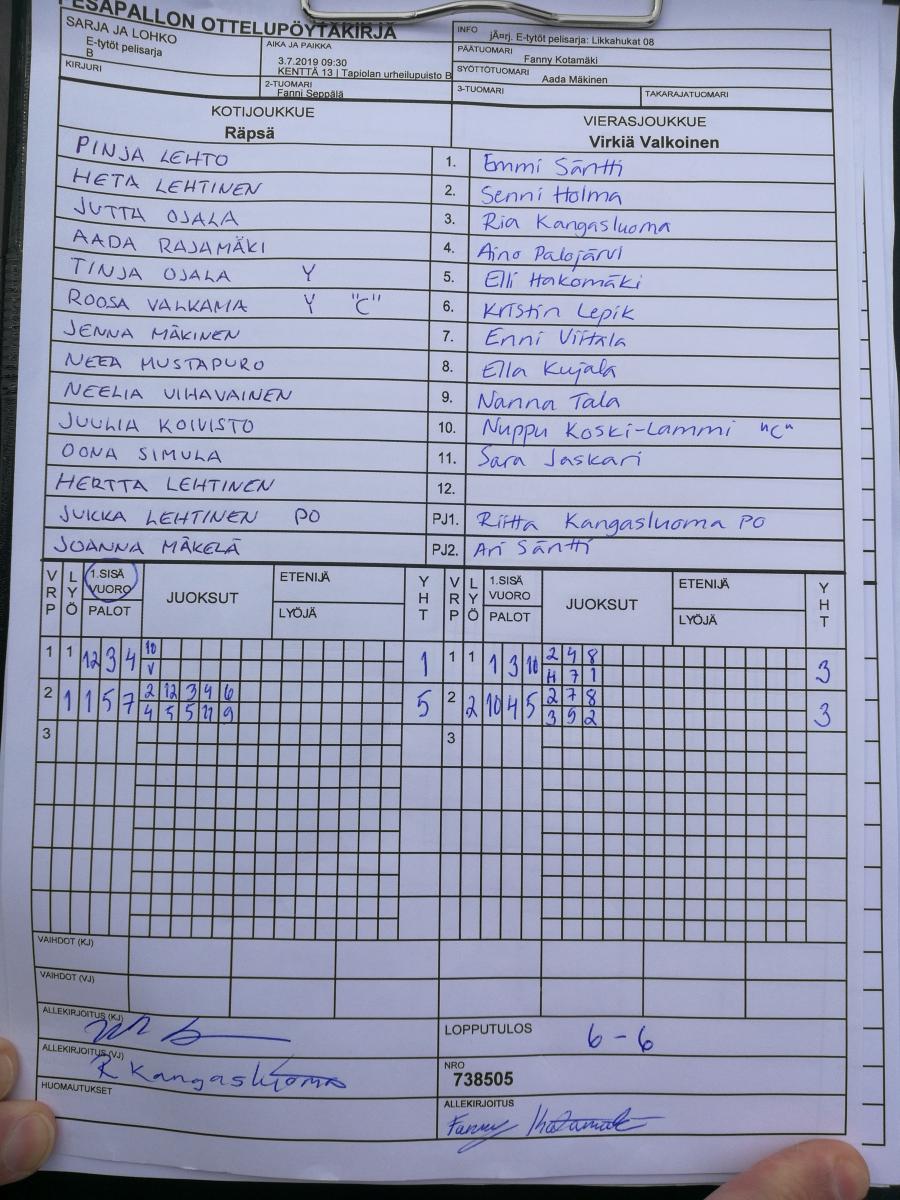 PESÄPALLON OTTELUPÖYTÄKIRJA
SARJA JA LOHKO
E-tytöt pelisarja
B
AIKA JA PAIKKA
3.7.2019 09:30
KENTTÄ 13 | Tapiolan urheilupuisto B
INFO jÃ¤rj. E-tytöt pelisarja: Likkahukat 08
PÄÄTUOMARI
Fanny Kotamäki
SYÖTTÖTUOMARI
Aada Mäkinen
KIRJURI
2-TUOMARI
Fanni Seppälä
3-TUOMARI
TAKARAJATUOMARI
KOTIJOUKKUE
Räpsä
VIERASJOUKKUE
Virkiä Valkoinen
PINJA LEHTO 1. Emmi Säntti
HETA LEHTINEN 2. Senni Holma
JUTTA OJALA 3. Ria Kangasluoma
AADA RAJAMÄKI 4. Aino Palojärvi
TINJA OJALA Y 5. Elli Hakomäki
ROOSA VALKAMA Y "C" 6. Kristin Lepik
JENNA MÄKINEN 7. Enni Viitala
NEEA MUSTAPURO 8. Ella Kujala
NEELIA VIHAVAINEN 9. Nanna Tala
JUULIA KOIVISTO 10. Nuppu Koski-Lammi "C"
OONA SIMULA 11. Sara Jaskari
HERTTA LEHTINEN 12.
JUKKA LEHTINEN PO PJ1. Riitta Kangasluoma PO
JOANNA MÄKELÄ PJ2. Ari Säntti
VRP LYÖ 1.SISÄ VUORO PALOT JUOKSUT ETENIJÄ LYÖJÄ YHT VRP LYÖ 1.SISÄ VUORO PALOT JUOKSUT ETENIJÄ LYÖJÄ YHT
1 1 12 3 4 10 1 1 1 1 3 10 2 4 8 3
V 4 7 1
2 1 1 5 7 2 12 3 4 6 5 2 2 10 4 5 2 7 8 3
4 5 5 11 9 3 5 2
3 3
VAIHDOT (KJ)
VAIHDOT (VJ)
ALLEKIRJOITUS (KJ)
LOPPUTULOS 6-6
ALLEKIRJOITUS (VJ)
R Kangasluoma
NRO
738505
HUOMAUTUKSET
ALLEKIRJOITUS
Fanny Kotamäki